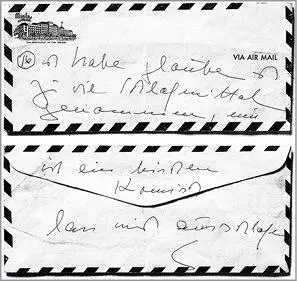 VIA AIR MAIL
16 ich habe glaube ich
zu viel Schlafmittel
genommen, mir
ist ein bisschen
komisch
lass mich ausschlafen